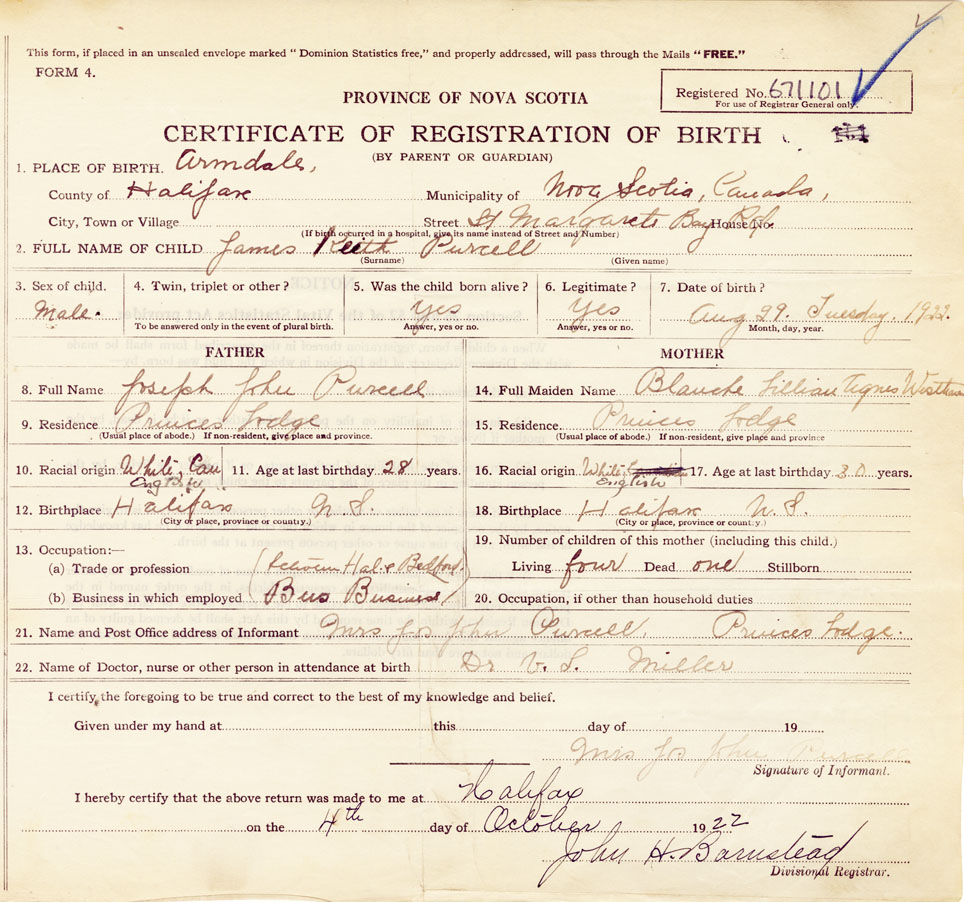 This form, if placed in an unsealed envelope marked " Dominion Statistics free," and properly addressed, will pass through the Mails "FREE."
FORM 4.
Registered No. 671101
For use of Registrar General only.
PROVINCE OF NOVA SCOTIA
CERTIFICATE OF REGISTRATION OF BIRTH
(BY PARENT OR GUARDIAN)
1. PLACE OF BIRTH. Armdale,
County of Halifax Municipality of Nova Scotia, Canada,
City, Town or Village Street St Margarets Bay Rd. House No.
(If birth occurred in a hospital, give its name instead of Street and Number)
2. FULL NAME OF CHILD James Keith Purcell
(Surname) (Given name)
3. Sex of child. 4. Twin, triplet or other? 5. Was the child born alive? 6. Legitimate? 7. Date of birth?
Male. yes yes Aug 29. Tuesday. 1922.
To be answered only in the event of plural birth. Answer, yes or no. Answer, yes or no. Month, day, year.
FATHER MOTHER
8. Full Name Joseph John Purcell 14. Full Maiden Name Blanche Lillian Agnes
9. Residence Princes Lodge 15. Residence. Princes Lodge
(Usual place of abode.) If non-resident, give place and province. (Usual place of abode.) If non-resident, give place and province
10. Racial origin White, Can English 11. Age at last birthday 28 years. 16. Racial origin White English 17. Age at last birthday 30 years.
12. Birthplace Halifax N.S. 18. Birthplace Halifax N.S.
(City or place, province or country.) (City or place, province or country.)
13. Occupation:— 19. Number of children of this mother (including this child.)
(a) Trade or profession Hal & Bedford Living four Dead one Stillborn
(b) Business in which employed Bus Business 20. Occupation, if other than household duties
21. Name and Post Office address of Informant Mrs Jos John Purcell, Princes Lodge.
22. Name of Doctor, nurse or other person in attendance at birth Dr V. L. Miller
I certify the foregoing to be true and correct to the best of my knowledge and belief.
Given under my hand at this day of 19
Mrs Jos John Purcell
Signature of Informant.
I hereby certify that the above return was made to me at Halifax
on the 4th day of October 1922
John H. Barnstead
Divisional Registrar.